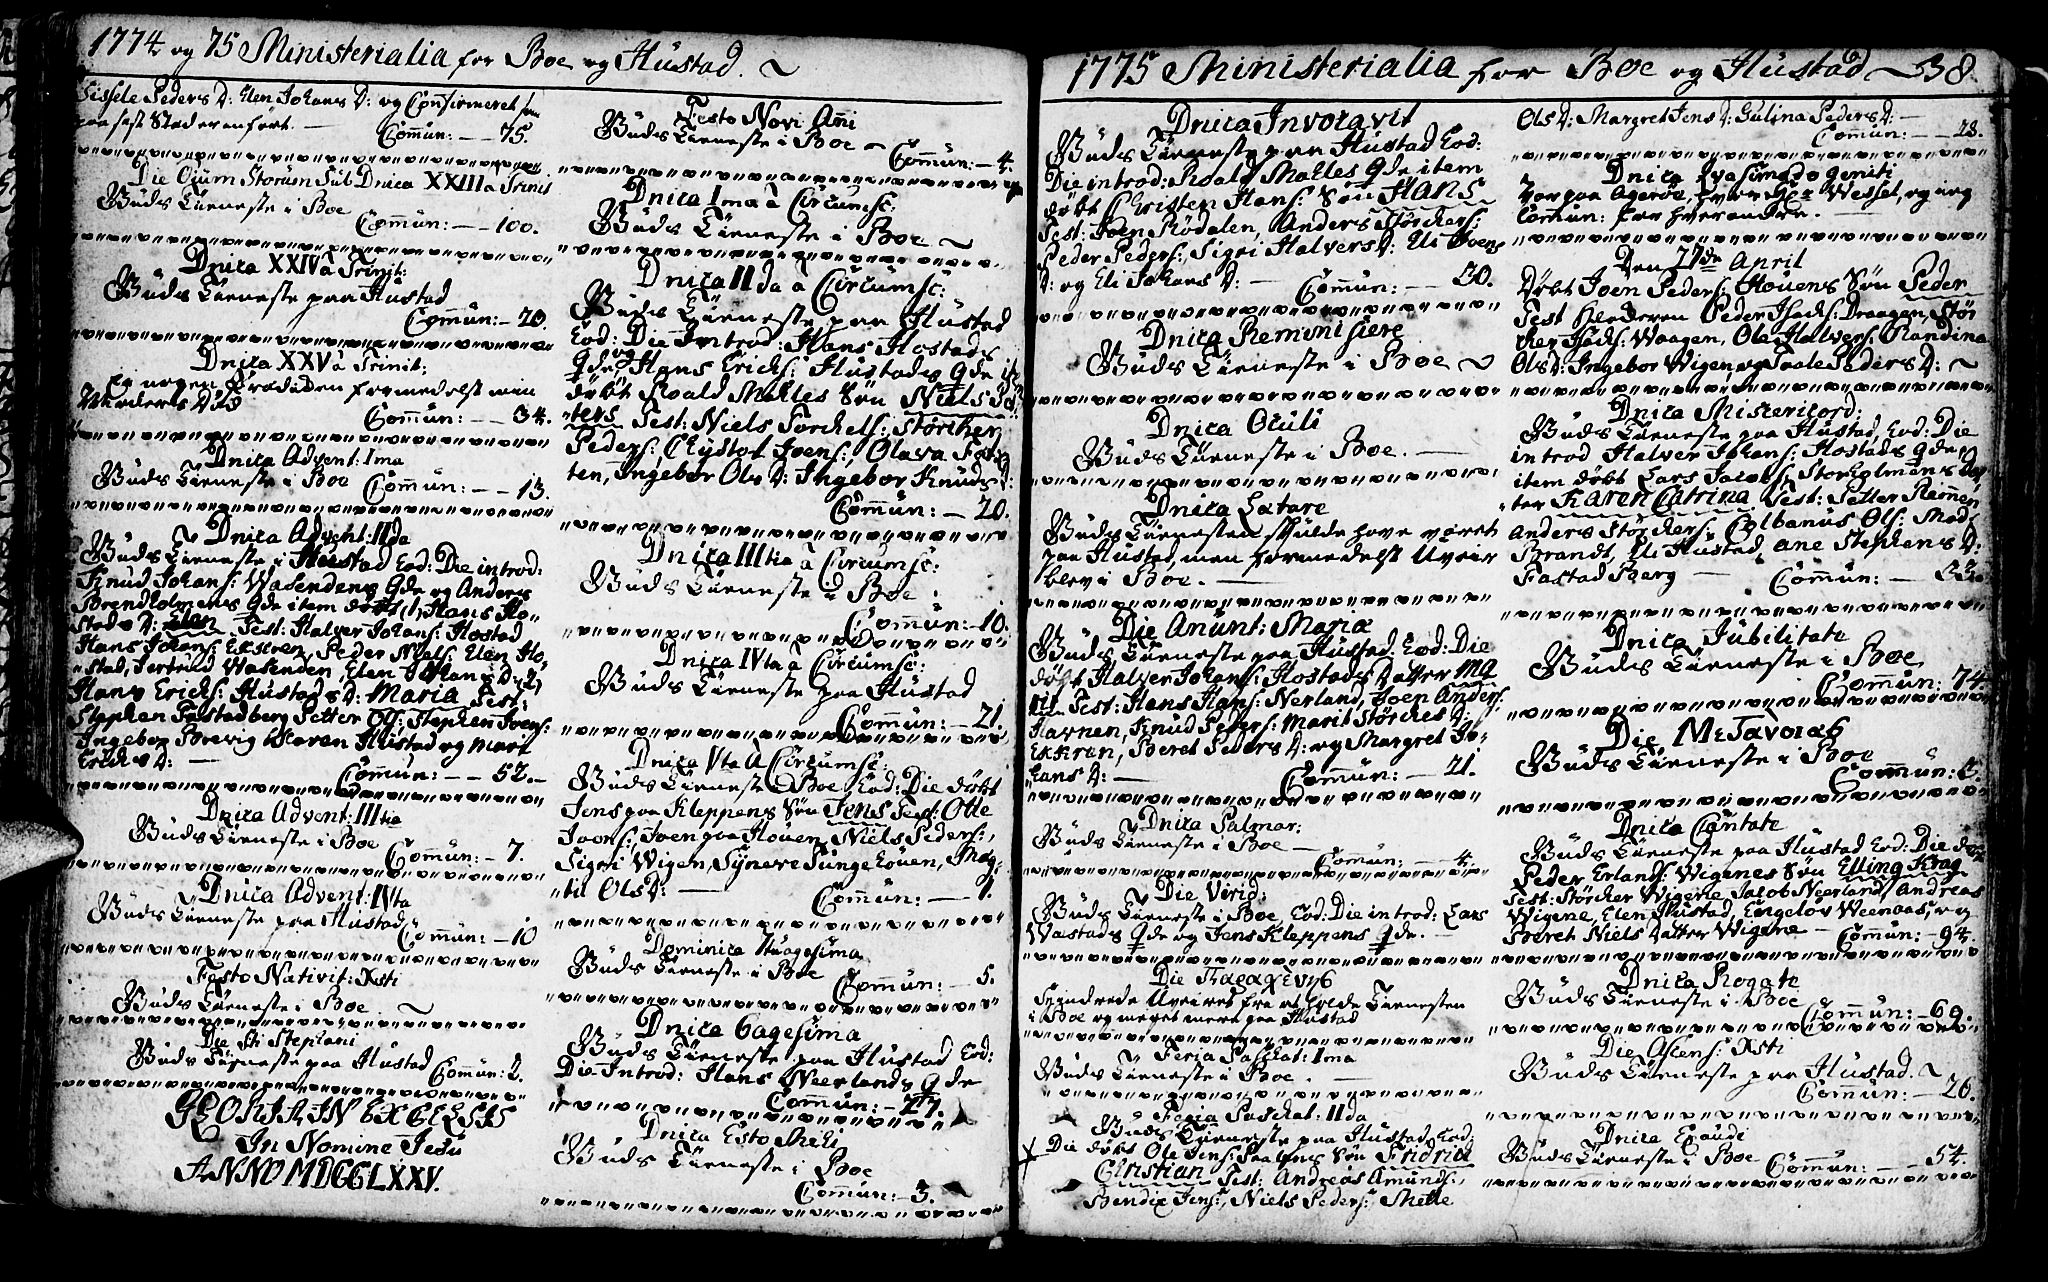 1774 og 75 Ministerialia for Boe og Hustad.
Sissele Peders D: Elen Johans D: og Confirmeret
paa sist Steder anfort. — Com̄un: — 75.
Die O\u0304ium Storum Sub Dnica XXIII à Trinit
Guds Tieneste i Boe
Com̄un: — 100.
Dnica XXIV à Trinit:
Guds Tieneste paa Hustad
Com̄un: — 20.
Dnica XXV à Trinit:
Ey nogen Prædiken formedelst min
Com̄un: — 34.
Dnica Advent: Ima
Guds Tieneste i Boe Com̄un: — 13.
Dnica Advent: IIda
Guds Tieneste i Hustad Eod: Die introd:
Knud Johans: Wasendens Qde og Anders
Brendholmens Qde item døbt 1, Hans Ho-
stads D: Elen Test: Halver Johans: Hostad
Hans Johans: Eksren, Peder Niels: Elen Ho-
stad, Jertrud Wasenden, Elen Johans D: 2,
Hans Ericks: Hustads D: Maria Test:
Stephen Fastadberg Petter Ols: Stephen Joens:
Ingebor Brevig Maren Hustad og Marit
Ericks D: —
Com̄un: — 52.
Dnica Advent: IIItia
Guds Tieneste i Boe Com̄un: — 7.
Dnica Advent: IVta
Guds Tieneste paa Hustad
Com̄un: — 10
Festo Nativit: Xsti
Guds Tieneste i Boe.
Die Sti Stephani
Guds Tieneste paa Hustad Com̄un: 2.
GLORIA IN EXCELSIS
In Nomine Jesu
ANNO MDCCLXXV.
Festo Novi Anni
Guds Tieneste i Boe — Com̄un: — 4.
Dnica Ima à Circumsc:
Guds Tieneste i Boe
Dnica IIda à Circumsc:
Guds Tieneste paa Hustad
Eod: Die Introd: Hans Hostads
Qde og Hans Ericks: Hustads Qde it:
døbt Roald Malles Søn Niels Pe-
ters Test: Niels Torchels: Størcher
Peders: Chrystof Joens:, Olava
ten, Ingebor Ols D: Ingebor Knuds D:
Com̄un: — 20.
Dnica IIItia à Circumsc:
Guds Tieneste i Boe.
Com̄un: — 10.
Dnica IVta à Circumsc:
Guds Tieneste paa Hustad
Com̄un: — 21.
Dnica Vta à Circumsc:
Guds Tieneste i Boe Eod: Die døbt
Jens paa Kleppens Søn Jens Test: Otte
Joens:, Joen paa Houen, Niels Peders:,
Sigri Wigen, Synøve Tungelouen, Mag-
til Ols D: — Com̄un: — 1.
Dominica 70agesima
Guds Tieneste i Boe
Com̄un: — 5.
Dnica 60agesima
Guds Tieneste paa Hustad Eod:
Die Introd: Hans Neerlands Qde
Com̄un: — 27.
Dnica Esto Mihi
Guds Tieneste i Boe
Com̄un: — 3.
1775 Ministerialia for Boe og Hustad — 38.
Dnica Invocavit
Guds Tieneste paa Hustad Eod:
Die introd: Roald Malles Qde item
døbt Christen Hans: Søn Hans
Test: Joen Rødalen, Anders Størckers:
Peder Peders: Sigri Halvers D: Eli Joens
D: og Eli Johans D: — Com̄un: — 30.
Dnica Reminiscere
Guds Tieneste i Boe
Dnica Oculi
Guds Tieneste i Boe. —
Dnica Lætare
Guds Tienesten skulde have været
paa Hustad, men formedelst Uveir
blev i Boe. —
Die Anunt: Mariæ
Guds Tieneste paa Hustad. Eod: Die
døbt Halver Johans: Hostads Datter Ma
rit Test: Hans Hans: Nerland, Joen Anders:
Havnen, Knud Peders: Marit Størches D:
Ekkren, Beret Peders D: og Margret Jo-
hans D: — Com̄un: — 21.
Dnica Palmar:
Guds Tieneste i Boe —
Com̄un: — 4.
Die Virid:
Guds Tieneste i Boe, Eod: Die introd: Lars
Wastads Qde og Jens Kleppens Qde. —
Die Παρασκευης
Hyndrede Uveiret fra at holde Tienesten
i Boe og meget mere paa Hustad
Feria Paschat: Ima
Guds Tieneste i Boe. —
Feria Paschat: IIda
Guds Tieneste paa Hustad Eod:
Die døbt Ole Jens: Søn Fridrich
Christian Test: Andreas Amunds:,
Bendix Jens:, Niels Peders:
Ols D: Margret Jens D: Gulina Peders D: —
Com̄un: — 28.
Dnica Qvasimodogeniti
Var paa Agerøe, Wessel, og ieg
Com̄un: for hverandre. —
Den 27de April
Døbt Joen Peders: Houens Søn Peder
Test: Peder Isachs: Draagen, Stør
cher Isachs: Waagen, Ole Halvers: Randina
Ols D: Ingebor Wigen, og Paale Peders D:
Dnica Misericord:
Guds Tieneste paa Hustad Eod: Die
introd Halver Johans: Hostads Qde
item døbt Lars Jacobs: Storholmens Dat
ter Karen Catrina Test: Petter Rømer
Anders Størckers: Colbanus Ols: Mad:
Brandt, Eli Hustad, Ane Stephens D:
Fastad Berg — Com̄un: — 33.
Dnica Jubilate
Guds Tieneste i Boe
Com̄un: 74.
Die
Guds Tieneste i Boe
Com̄un: 5.
Dnica Cantate
Guds Tieneste paa Hustad Eod: Die døbt
Peder Erlands: Wigenes Søn Elling Krag
Test: Størcker Wigene, Jacob Neerland, Andreas
Wigene, Elen Hustad, Engelov Weenaas, og
Beret Niels Datter Wigene — Com̄un: — 94.
Dnica Rogate
Guds Tieneste i Boe
Com̄un: — 69.
Die Ascens: Xsti
Guds Tieneste paa Hustad.
Com̄un: — 26.
Dnica Exaudi
Guds Tieneste i Boe Com̄un: — 54.